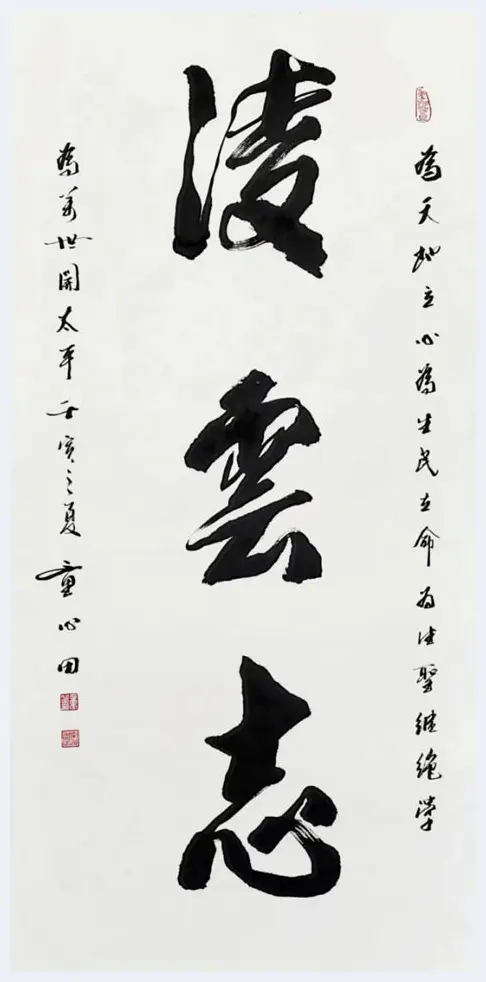 為天地立心為生民立命为往聖继绝學
淩雲志
為萬世開太平壬寅之夏童心田